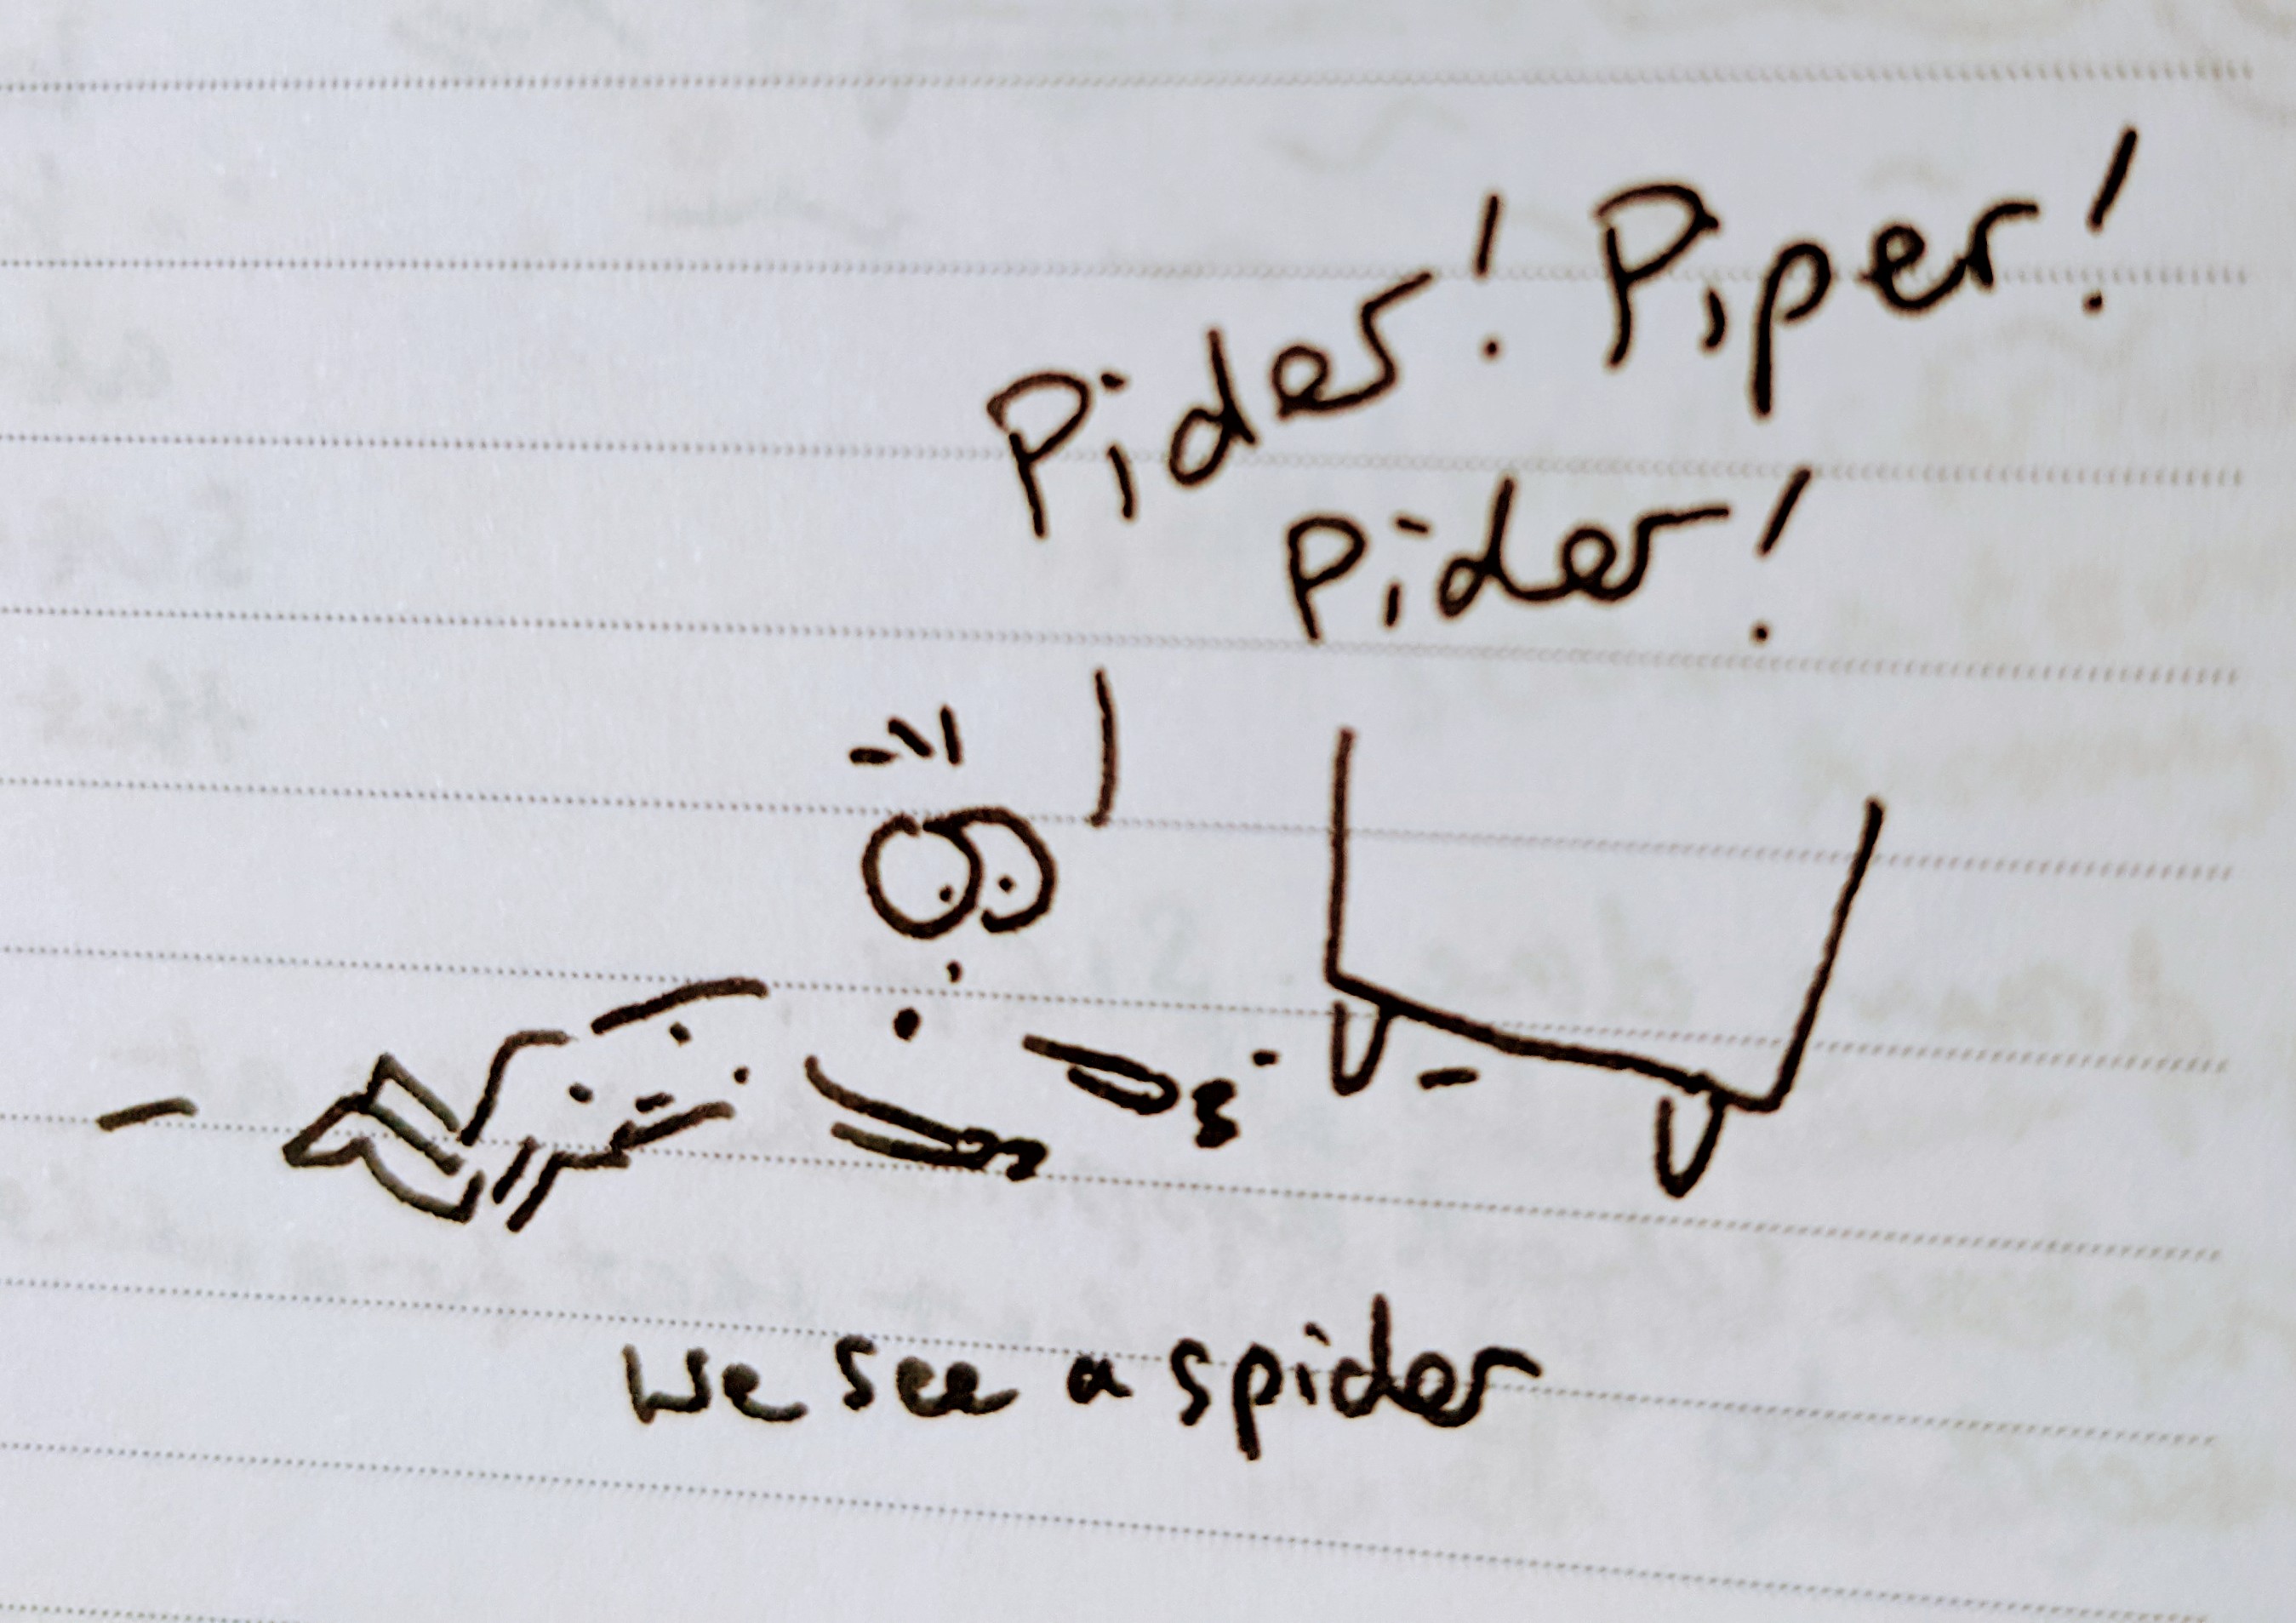 Pider! Piper!
Pider!
we see a spider